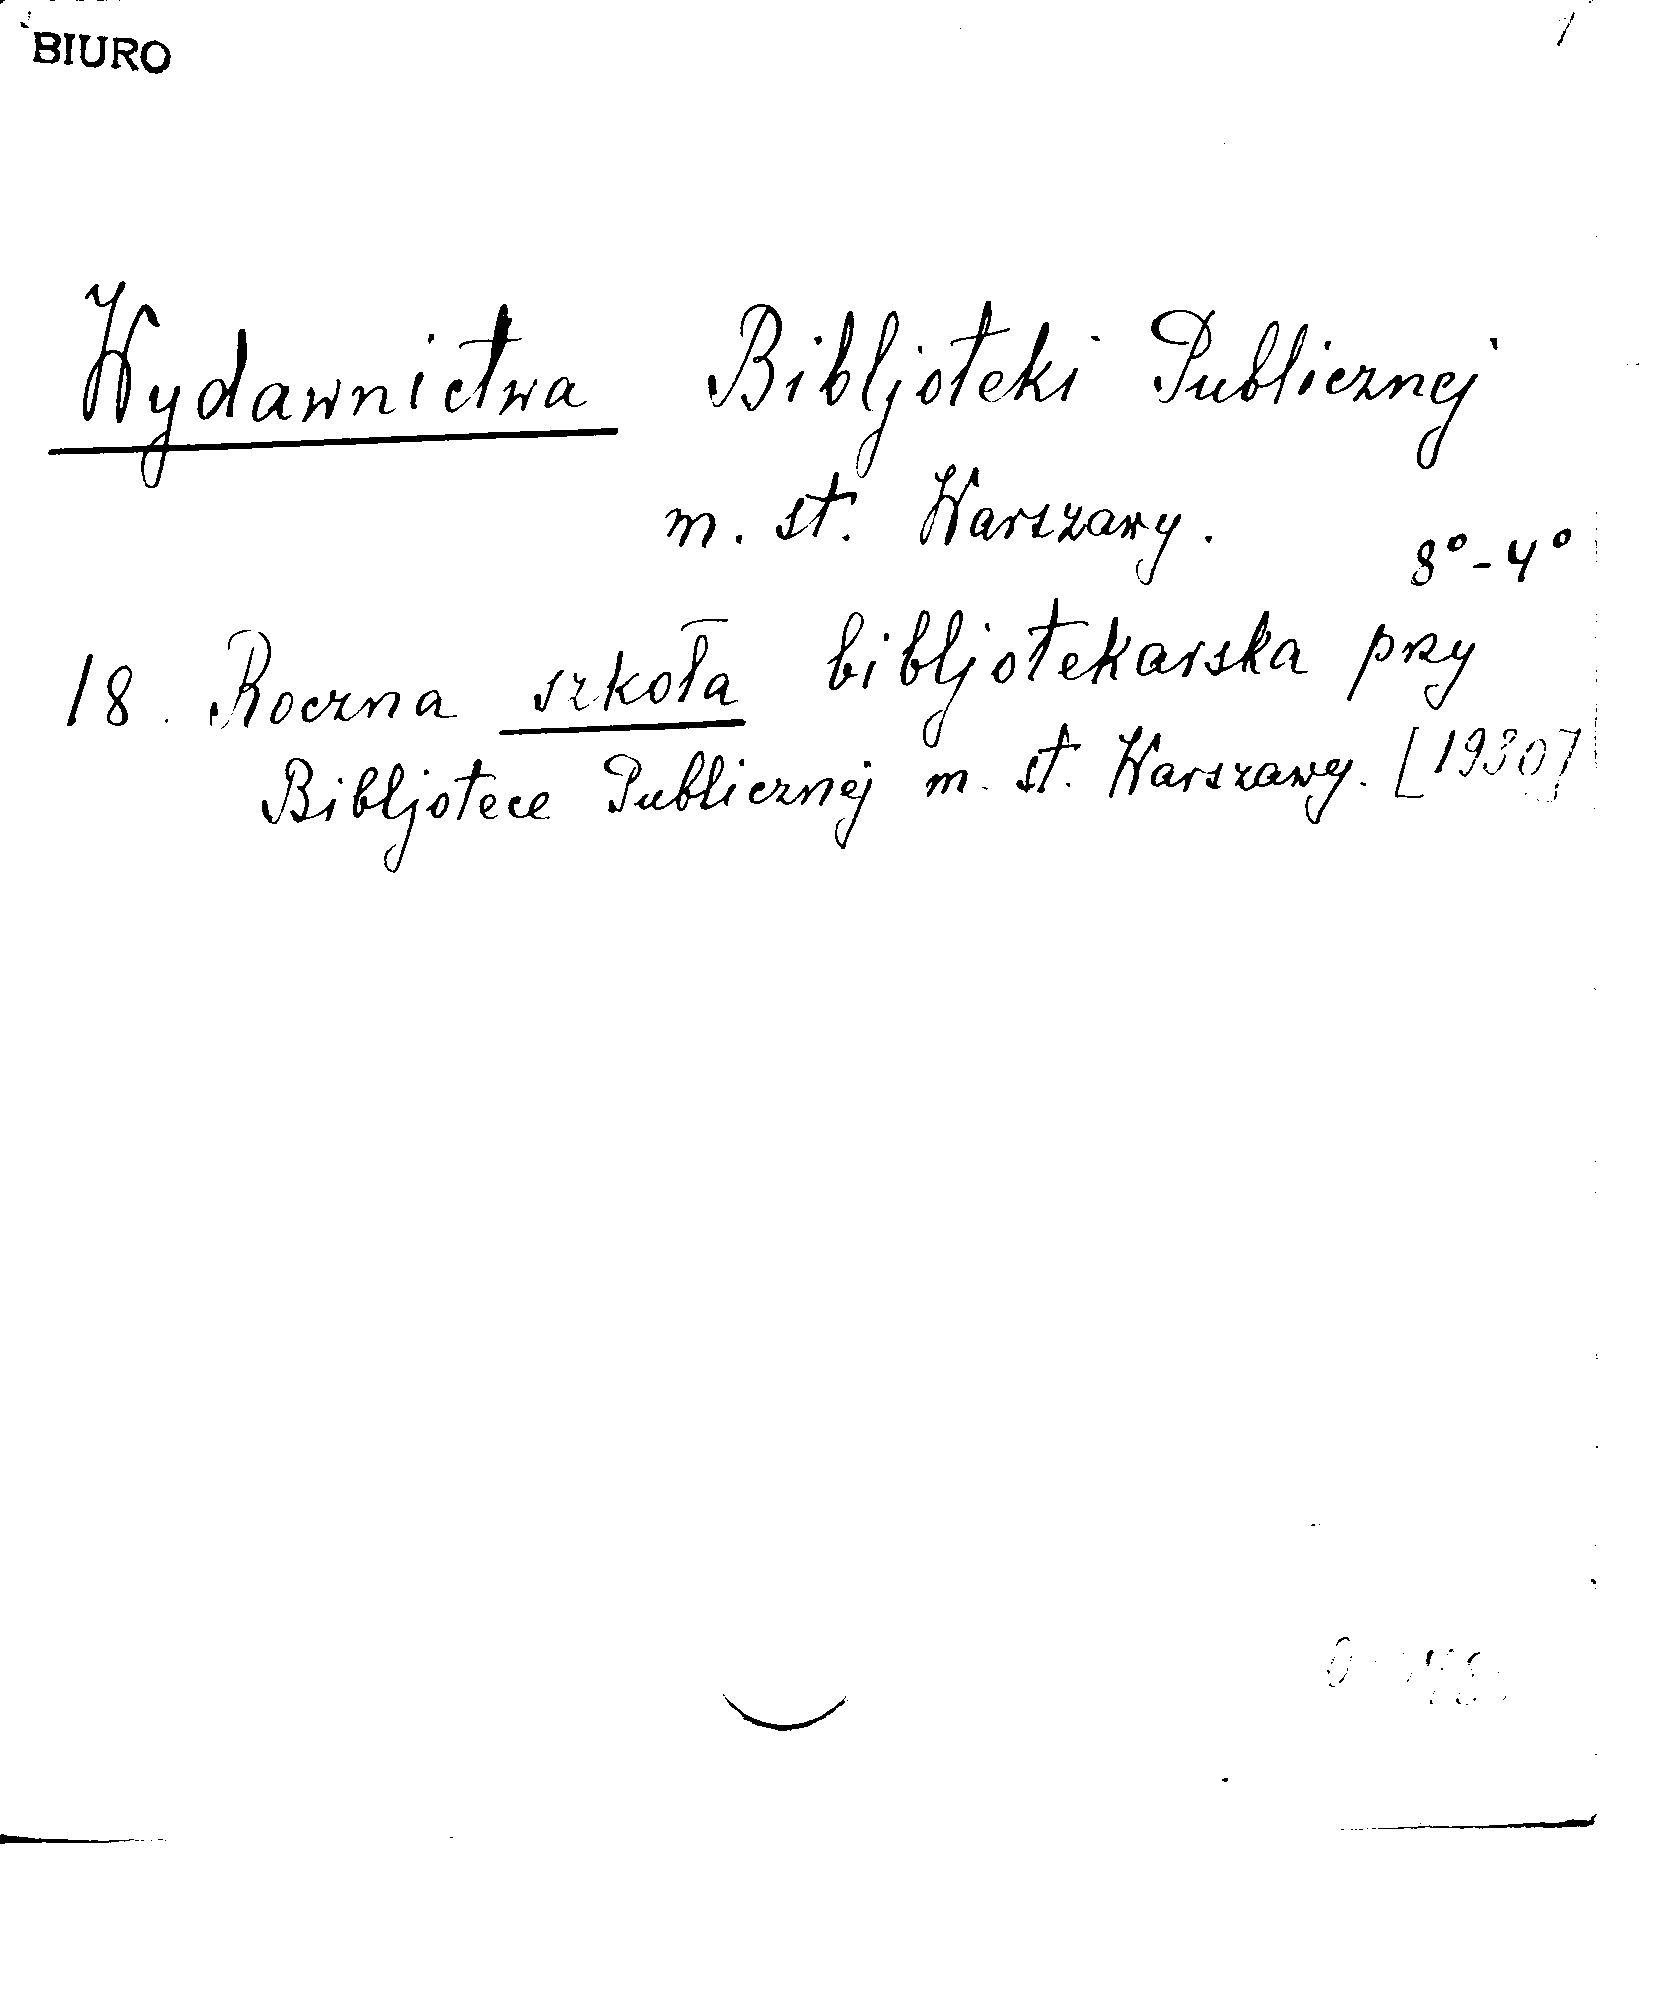 BIURO
1
Wydawnictwa Bibljoteki Publicznej
m. st. Warszawy.
8° - 4°
18. Roczna szkoła bibljotekarska przy
Bibljotece Publicznej m. st. Warszawy. [1930]